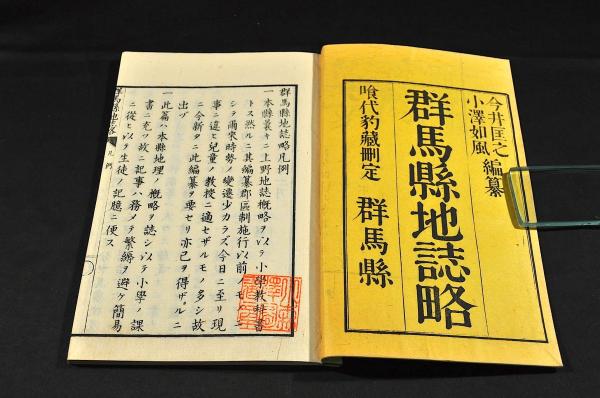 今井匡之
小澤如風 編纂
群馬縣地誌略
喰代豹藏刪定 群馬縣
群馬縣地誌略凡例
一本縣曩キニ上野地誌概略ヲ以テ小學教科書
トス然ルニ其編纂郡區制施行以前ノモノニ
シテ爾来時勢ノ變遷少カラズ今日ニ至リ現
事ニ違ヒ兒童ノ教授ニ適セザルモノ多シ故
ニ今新タニ此編纂ヲ要セリ亦已ヲ得ザルニ
出ヅ
一此篇ハ本縣地理ノ概略ヲ誌シ以テ小學ノ課
書ニ充ツ故ニ記事ハ務メテ繁縟ヲ避ケ簡易
ニ從ヒ以テ生徒ノ記憶ニ便ス
群馬縣地誌略 凡例